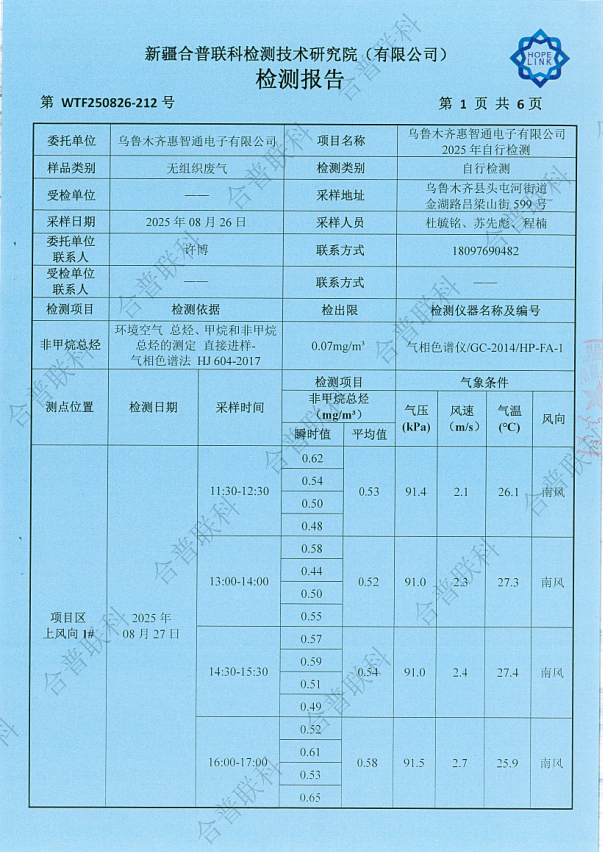 新疆合普联科检测技术研究院（有限公司）
HOPE
LINK
检测报告
第 WTF250826-212 号
第 1 页 共 6 页
委托单位 乌鲁木齐惠智通电子有限公司 项目名称 乌鲁木齐惠智通电子有限公司
2025年自行检测
样品类别 无组织废气 检测类别 自行检测
受检单位 —— 采样地址 乌鲁木齐县头屯河街道
金湖路吕梁山街599号
采样日期 2025年08月26日 采样人员 杜毓铭、苏先彪、程楠
委托单位
联系人 许博 联系方式 18097690482
受检单位
联系人 —— 联系方式 ——
检测项目 检测依据 检出限 检测仪器名称及编号
非甲烷总烃 环境空气 总烃、甲烷和非甲烷
总烃的测定 直接进样-
气相色谱法 HJ 604-2017 0.07mg/m³ 气相色谱仪/GC-2014/HP-FA-1
测点位置 检测日期 采样时间 检测项目 气象条件
非甲烷总烃
（mg/m³） 气压
(kPa) 风速
（m/s） 气温
(℃) 风向
瞬时值 平均值
项目区
上风向1# 2025年
08月27日
11:30-12:30 0.62 0.53 91.4 2.1 26.1 南风
0.54
0.50
0.48
13:00-14:00 0.58 0.52 91.0 2.3 27.3 南风
0.44
0.50
0.55
14:30-15:30 0.57 0.54 91.0 2.4 27.4 南风
0.59
0.51
0.49
16:00-17:00 0.52 0.58 91.5 2.7 25.9 南风
0.61
0.53
0.65
合普联科
合普联科
合普联科
合普联科
合普联科
合普联科
合普联科
合普联科
合普联科
合普联科
合普联科
合普联科
合普联科